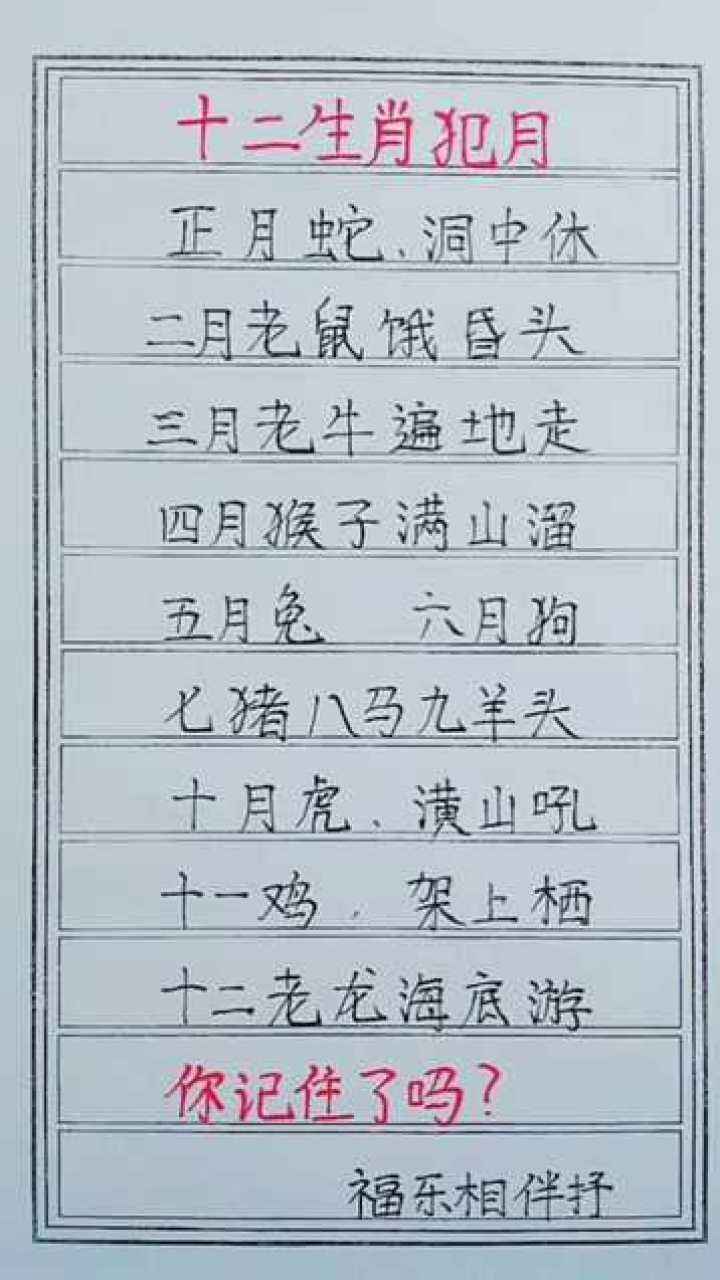 十二生肖犯月
正月蛇、洞中休
二月老鼠饿昏头
三月老牛遍地走
四月猴子满山溜
五月兔 六月狗
七猪八马九羊头
十月虎、潢山吼
十一鸡、架上栖
十二老龙海底游
你记住了吗?
福乐相伴抒